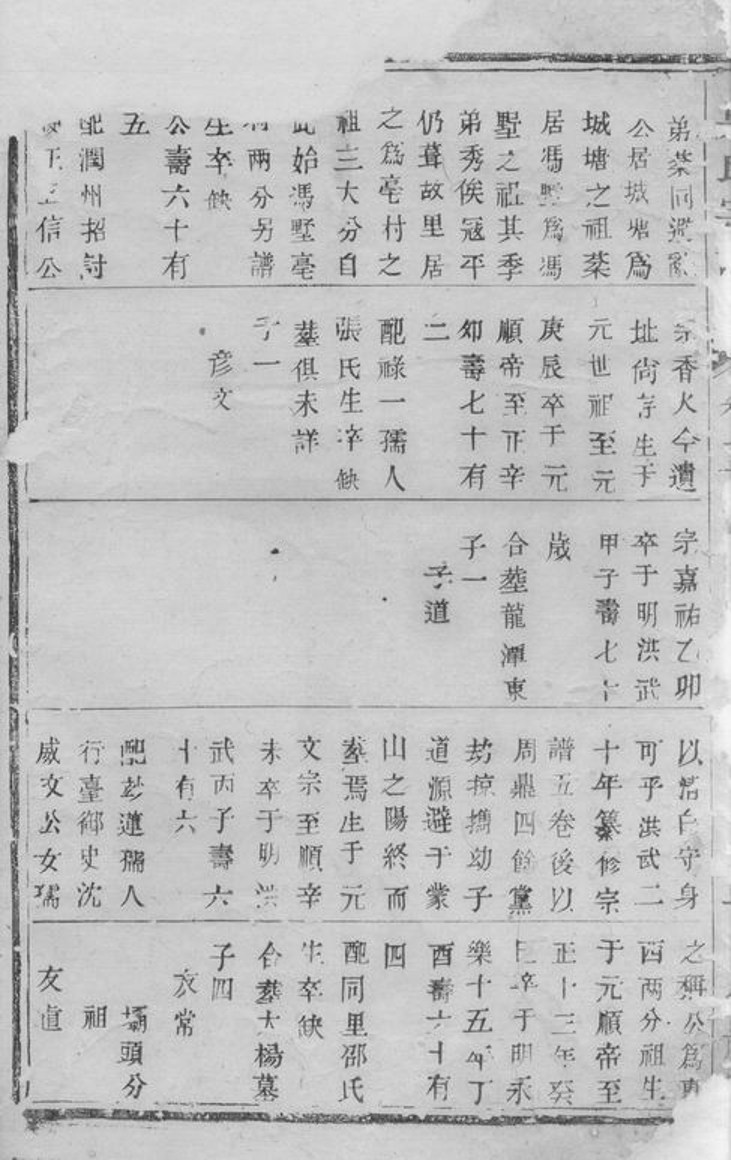 弟棻同避亂
公居城塘爲
城塘之祖棻
居馮墅爲馮
墅之祖其季
弟秀俟寇平
仍葺故里居
之爲亳村之
祖三大分自
此始馮墅亳
村兩分另譜
生卒缺
公壽六十有
五
配潤州招討
信公
宗香火今遺
址尙存生于
元世祖至元
庚辰卒于元
順帝至正辛
卯壽七十有
二
配祿一孺人
張氏生卒缺
葬俱未詳
子一
彦文
宗嘉祐乙卯
卒于明洪武
甲子壽七十
歲
合葬龍潭東
子一
子道
以清白守身
可乎洪武二
十年纂修宗
譜五卷後以
周鼎四餘黨
劫掠攜幼子
道源避于蒙
山之陽終而
葬焉生于元
文宗至順辛
未卒于明洪
武丙子壽六
十有六
配妙蓮孺人
行臺御史沈
威文公女孺
之稱公爲東
西兩分祖生
于元順帝至
正十三年癸
巳卒于明永
樂十五年丁
酉壽六十有
四
配同里邵氏
生卒缺
合葬大楊墓
子四
友常
壩頭分
祖
友直